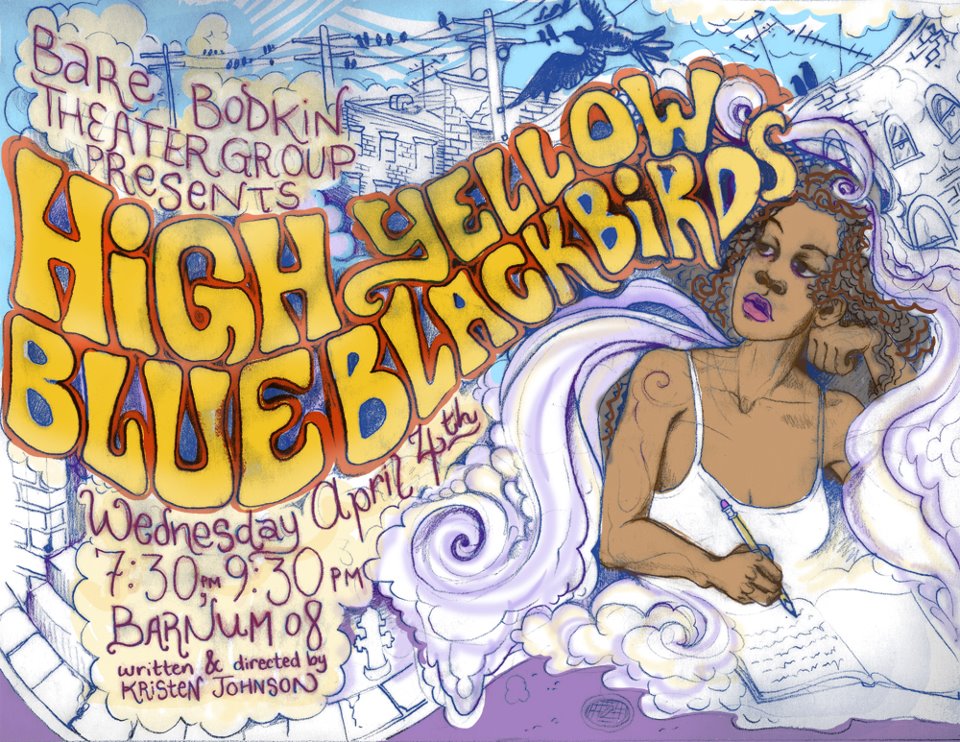 Bare Bodkin
Theater Group
Presents
High Yellow
Blue Blackbirds
Wednesday April 4th
7:30 PM, 9:30 PM
Barnum 08
written & directed by
Kristen Johnson